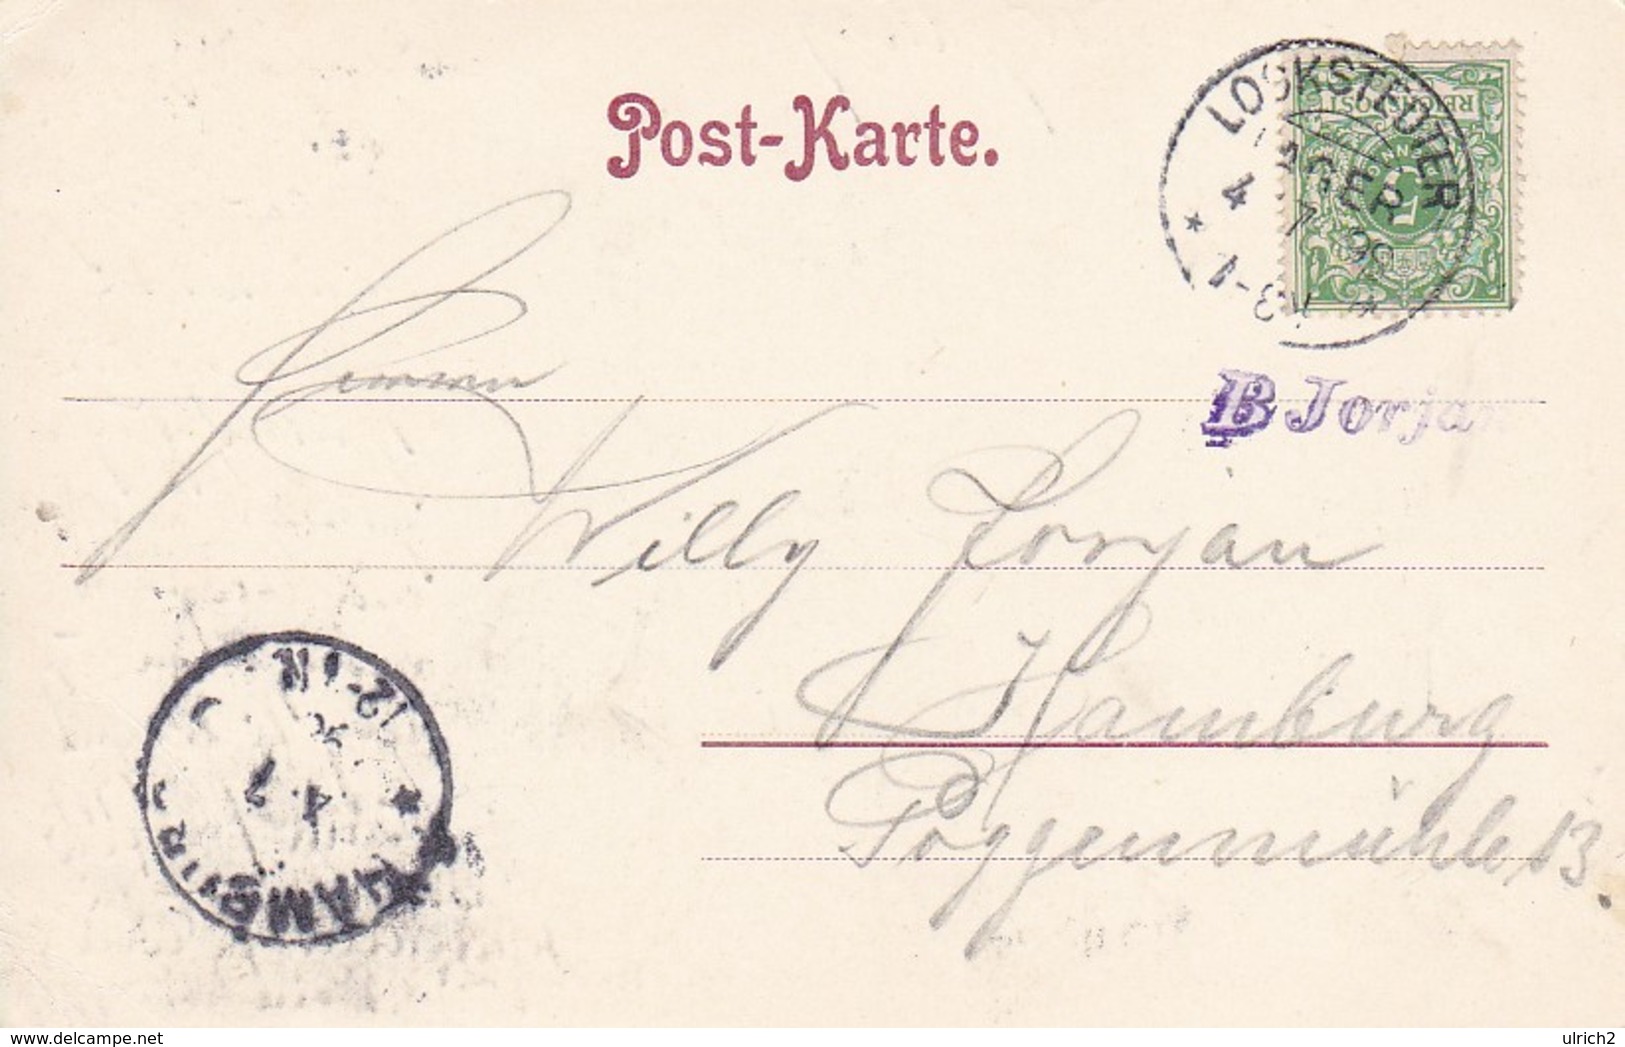 Post-Karte.
LOCKSTEDTER
LAGER
4 7 98
7-8 V
REICHSPOST
5
PFENNIG
B Jorjan
Herrn
Willy Jorjan
Hamburg
Poggenmühle 13.
HAMBURG
4. 7
12-1 N
delcampe.net
ulrich2